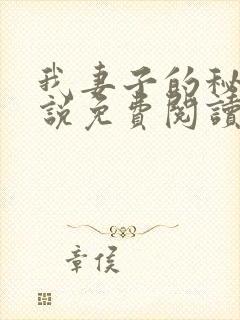 我妻子的秘
說免費閱讀
章侯